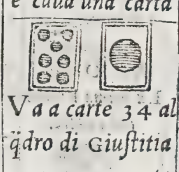 e caua una carta
Va a carte 34 al
q̃dro di Giuſtitia